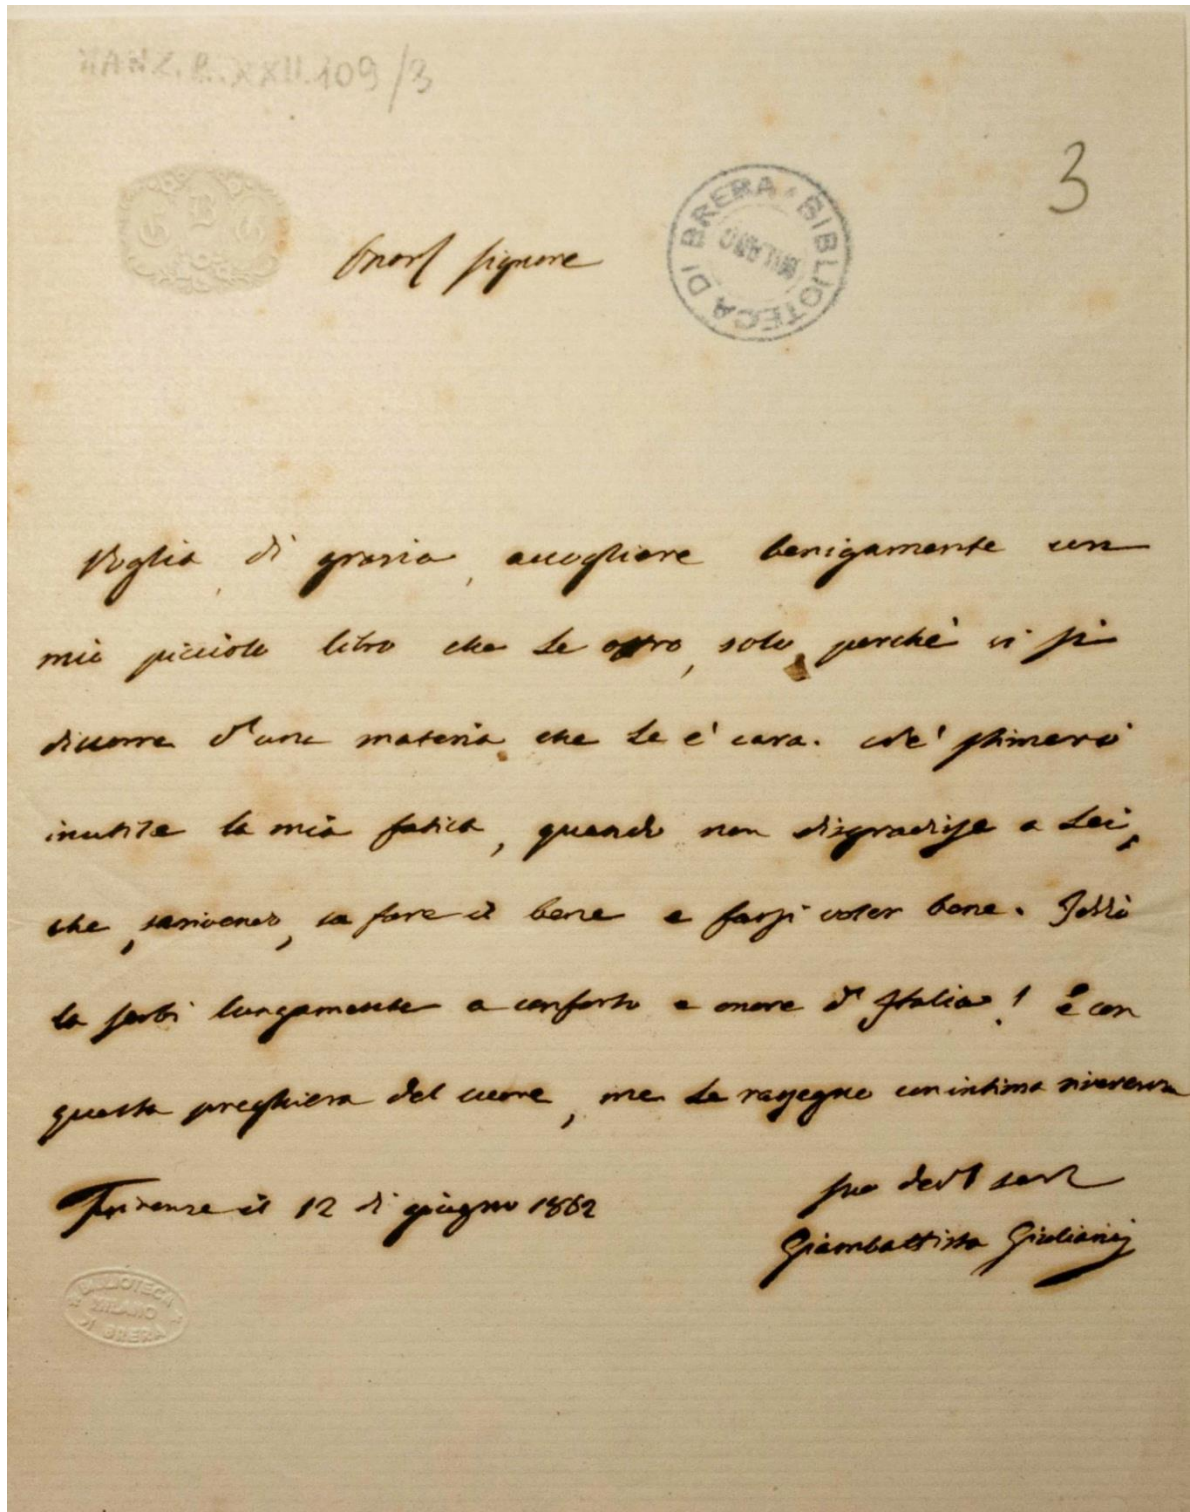 MANZ. B. XXII. 109/3
3
G B G
BIBLIOTECA DI BRERA
MILANO
Onorl Signore
Voglia, di grazia, accogliere benigamente un
mio picciolo libro che Le offro, solo perchè vi si
discorre d'una materia che Le è cara. Nè stimerò
inutile la mia fatica, quando non disgradisse a Lei,
che, scrivendo, sa fare il bene e farsi voler bene. Iddio
la serbi lungamente a conforto e onore d'Italia! E con
questa preghiera del cuore, me Le rassegno con intima riverenza
Firenze il 12 di giugno 1862
Suo
Giambattista Giuliani
BIBLIOTECA
MILANO
DI BRERA